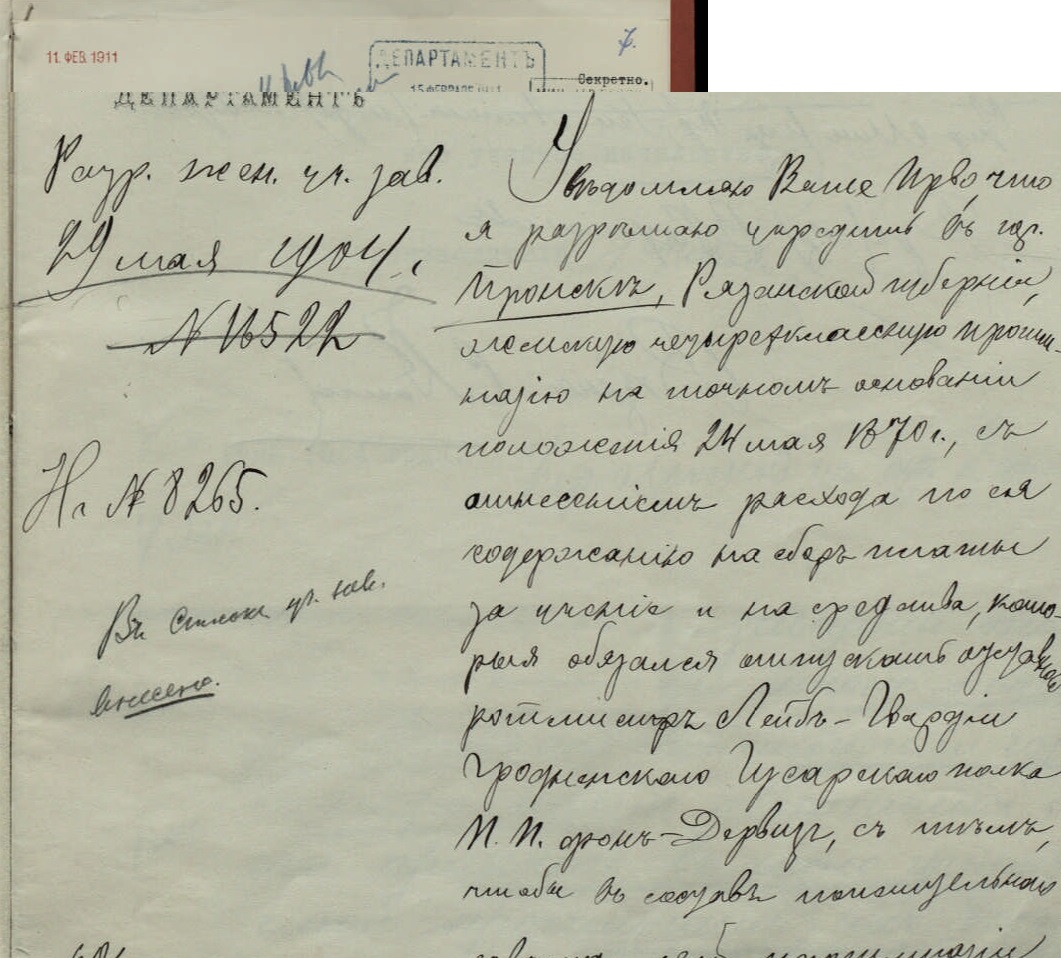 11. ФЕВ. 1911
ДЕПАРТАМЕНТЪ
Секретно.
15 ФЕВРАЛЯ 1911
ДЕПАРТАМЕНТЪ
Разр. жен. уч. зав.
29 мая 1904 г.
№ 16522
Н. № 8265.
Въ списокъ уч. зав.
внесено.
Увѣдомляю Ваше Прво, что
я разрѣшаю учредить въ гор.
Пронскѣ, Рязанской губерніи,
женскую четырехклассную прогим-
назію на точномъ основаніи
положенія 24 мая 1870 г., съ
отнесеніемъ расхода по ея
содержанію на сборъ платы
за ученіе и на средства, кото-
рыя обязался отпускать отставной
ротмистръ Лейбъ-Гвардіи
Гродненскаго Гусарскаго полка
П. П. фонъ-Дервизъ, съ тѣмъ,
чтобы въ составъ попечительнаго